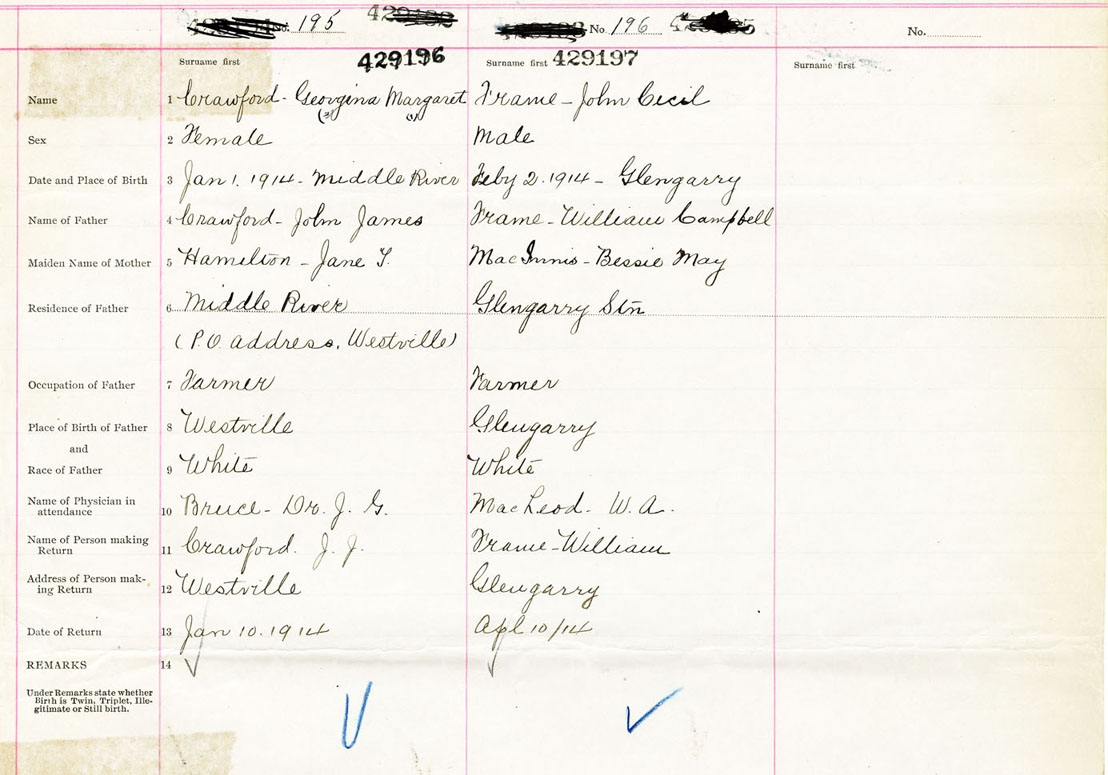 No. 195 No. 196 No.
Surname first 429196 Surname first 429197 Surname first
Name 1 Crawford - Georgina Margaret Frame - John Cecil
(2) (1)
Sex 2 Female Male
Date and Place of Birth 3 Jan 1. 1914 - Middle River Feby 2. 1914 - Glengarry
Name of Father 4 Crawford - John James Frame - William Campbell
Maiden Name of Mother 5 Hamilton - Jane T. MacInnis - Bessie May
Residence of Father 6 Middle River Glengarry Stn
(P.O. address, Westville)
Occupation of Father 7 Farmer Farmer
Place of Birth of Father 8 Westville Glengarry
and
Race of Father 9 White White
Name of Physician in
attendance 10 Bruce - Dr. J. G. MacLeod - W. A.
Name of Person making
Return 11 Crawford. J. J. Frame - William
Address of Person mak-
ing Return 12 Westville Glengarry
Date of Return 13 Jan 10. 1914 Apl 10/14
REMARKS 14
Under Remarks state whether
Birth is Twin, Triplet, Ille-
gitimate or Still birth.